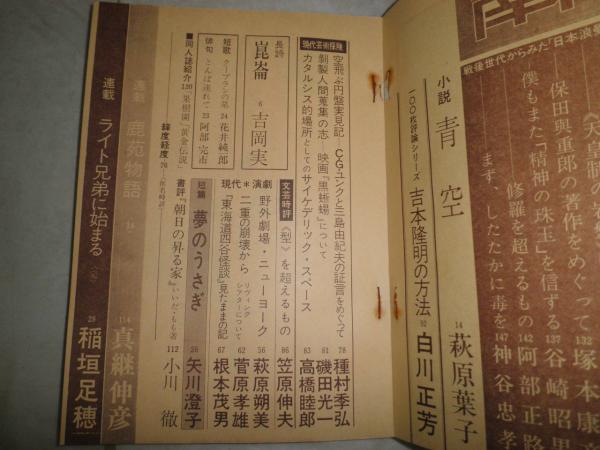 戦後世代からみた「日本浪
(天皇制
――保田與重郎の著作をめぐって 132 塚本康
僕もまた「精神の珠玉」を信ずる 137 谷崎昭男
修羅 超えるもの 142 阿部正路
まず、 たたかに毒を 147 神谷忠孝
小説 青空 14 萩原葉子
一〇〇枚評論シリーズ 吉本隆明の方法 92 白川正芳
現代芸術探険
空飛ぶ円盤実見記――C・G・ユンクと三島由紀夫の証言をめぐって 78 種村季弘
剝製人間蒐集の志――映画『黒蜥蜴』について 81 磯田光一
カタルシス的場所としてのサイケデリック・スペース 83 高橋睦郎
文芸時評 《型》を超えるもの 86 笠原伸夫
現代*演劇
野外劇場・ニューヨーク 56 萩原朔美
二重の崩壊から リヴィング・シアターについて 62 菅原孝雄
『東海道四谷怪談』見たままの記 67 根本茂男
長詩 崑崙 6 吉岡実
短歌 クープランの墓 24 花井純一郎
俳句 とんぼ連れて 23 阿部完市
■同人誌紹介 130 「果樹園」「黄金伝説」
緯度経度 70
短篇 夢のうさぎ 36 矢川澄子
書評『朝日の昇る家』いいだ・もも著 112 小川徹
連載 鹿苑物語 114 真継伸彦
連載 ライト兄弟に始まる 28 稲垣足穂